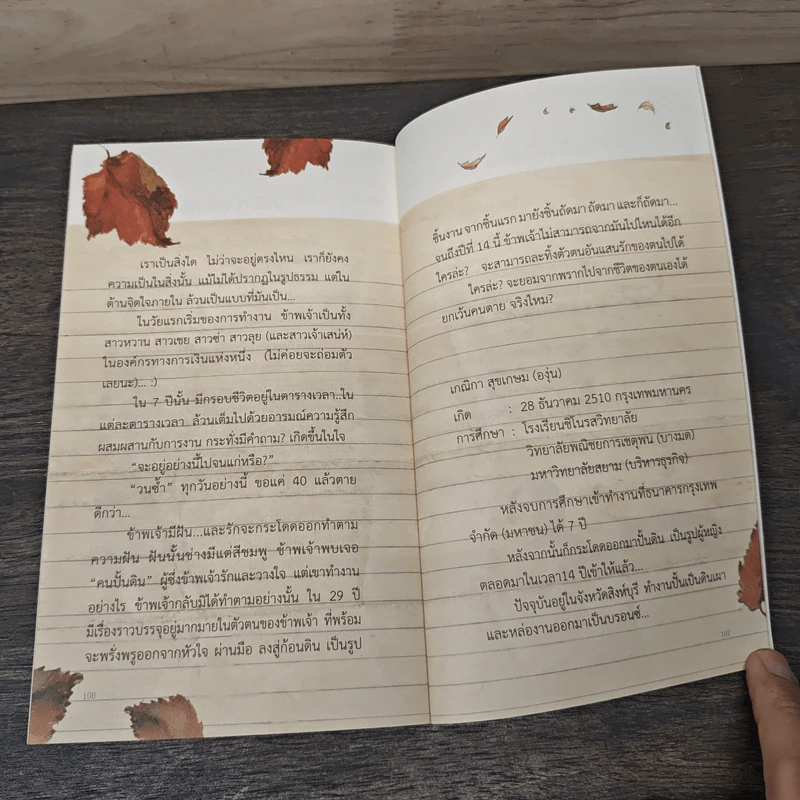 เราเป็นสิ่งใด ไม่ว่าจะอยู่ตรงไหน เราก็ยังคง
ความเป็นในสิ่งนั้น แม้ไม่ได้ปรากฏในรูปธรรม แต่ใน
ด้านจิตใจภายใน ล้วนเป็นแบบที่มันเป็น...
ในวัยแรกเริ่มของการทำงาน ข้าพเจ้าเป็นทั้ง
สาวหวาน สาวเชย สาวซ่า สาวลุย (และสาวเจ้าเสน่ห์)
ในองค์กรทางการเงินแห่งหนึ่ง (ไม่ค่อยจะถ่อมตัว
เลยนะ)... :)
ใน 7 ปีนั้น มีกรอบชีวิตอยู่ในตารางเวลา..ใน
แต่ละตารางเวลา ล้วนเต็มไปด้วยอารมณ์ความรู้สึก
ผสมผสานกับการงาน กระทั่งมีคำถาม? เกิดขึ้นในใจ
“จะอยู่อย่างนี้ไปจนแก่หรือ?”
“วนซ้ำ” ทุกวันอย่างนี้ ขอแค่ 40 แล้วตาย
ดีกว่า...
ข้าพเจ้ามีฝัน...และรักจะกระโดดออกทำตาม
ความฝัน ฝันนั้นช่างมีแต่สีชมพู ข้าพเจ้าพบเจอ
“คนปั้นดิน” ผู้ซึ่งข้าพเจ้ารักและวางใจ แต่เขาทำงาน
อย่างไร ข้าพเจ้ากลับมิได้ทำตามอย่างนั้น ใน 29 ปี
มีเรื่องราวบรรจุอยู่มากมายในตัวตนของข้าพเจ้า ที่พร้อม
จะพรั่งพรูออกจากหัวใจ ผ่านมือ ลงสู่ก้อนดิน เป็นรูป
106
ชิ้นงาน จากชิ้นแรก มายังชิ้นถัดมา ถัดมา และก็ถัดมา...
จนถึงปีที่ 14 นี้ ข้าพเจ้าไม่สามารถจากมันไปไหนได้อีก
ใครล่ะ? จะสามารถละทิ้งตัวตนอันแสนรักของตนไปได้
ใครล่ะ? จะยอมจากพรากไปจากชีวิตของตนเองได้
ยกเว้นคนตาย จริงไหม?
เกณิกา สุขเกษม (องุ่น)
เกิด : 28 ธันวาคม 2510 กรุงเทพมหานคร
การศึกษา : โรงเรียนชิโนรสวิทยาลัย
วิทยาลัยพณิชยการเชตุพน (บางมด)
มหาวิทยาลัยสยาม (บริหารธุรกิจ)
หลังจบการศึกษาเข้าทำงานที่ธนาคารกรุงเทพ
จำกัด (มหาชน) ได้ 7 ปี
หลังจากนั้นก็กระโดดออกมาปั้นดิน เป็นรูปผู้หญิง
ตลอดมาในเวลา14 ปีเข้าให้แล้ว...
ปัจจุบันอยู่ในจังหวัดสิงห์บุรี ทำงานปั้นเป็นดินเผา
และหล่องานออกมาเป็นบรอนซ์...
107